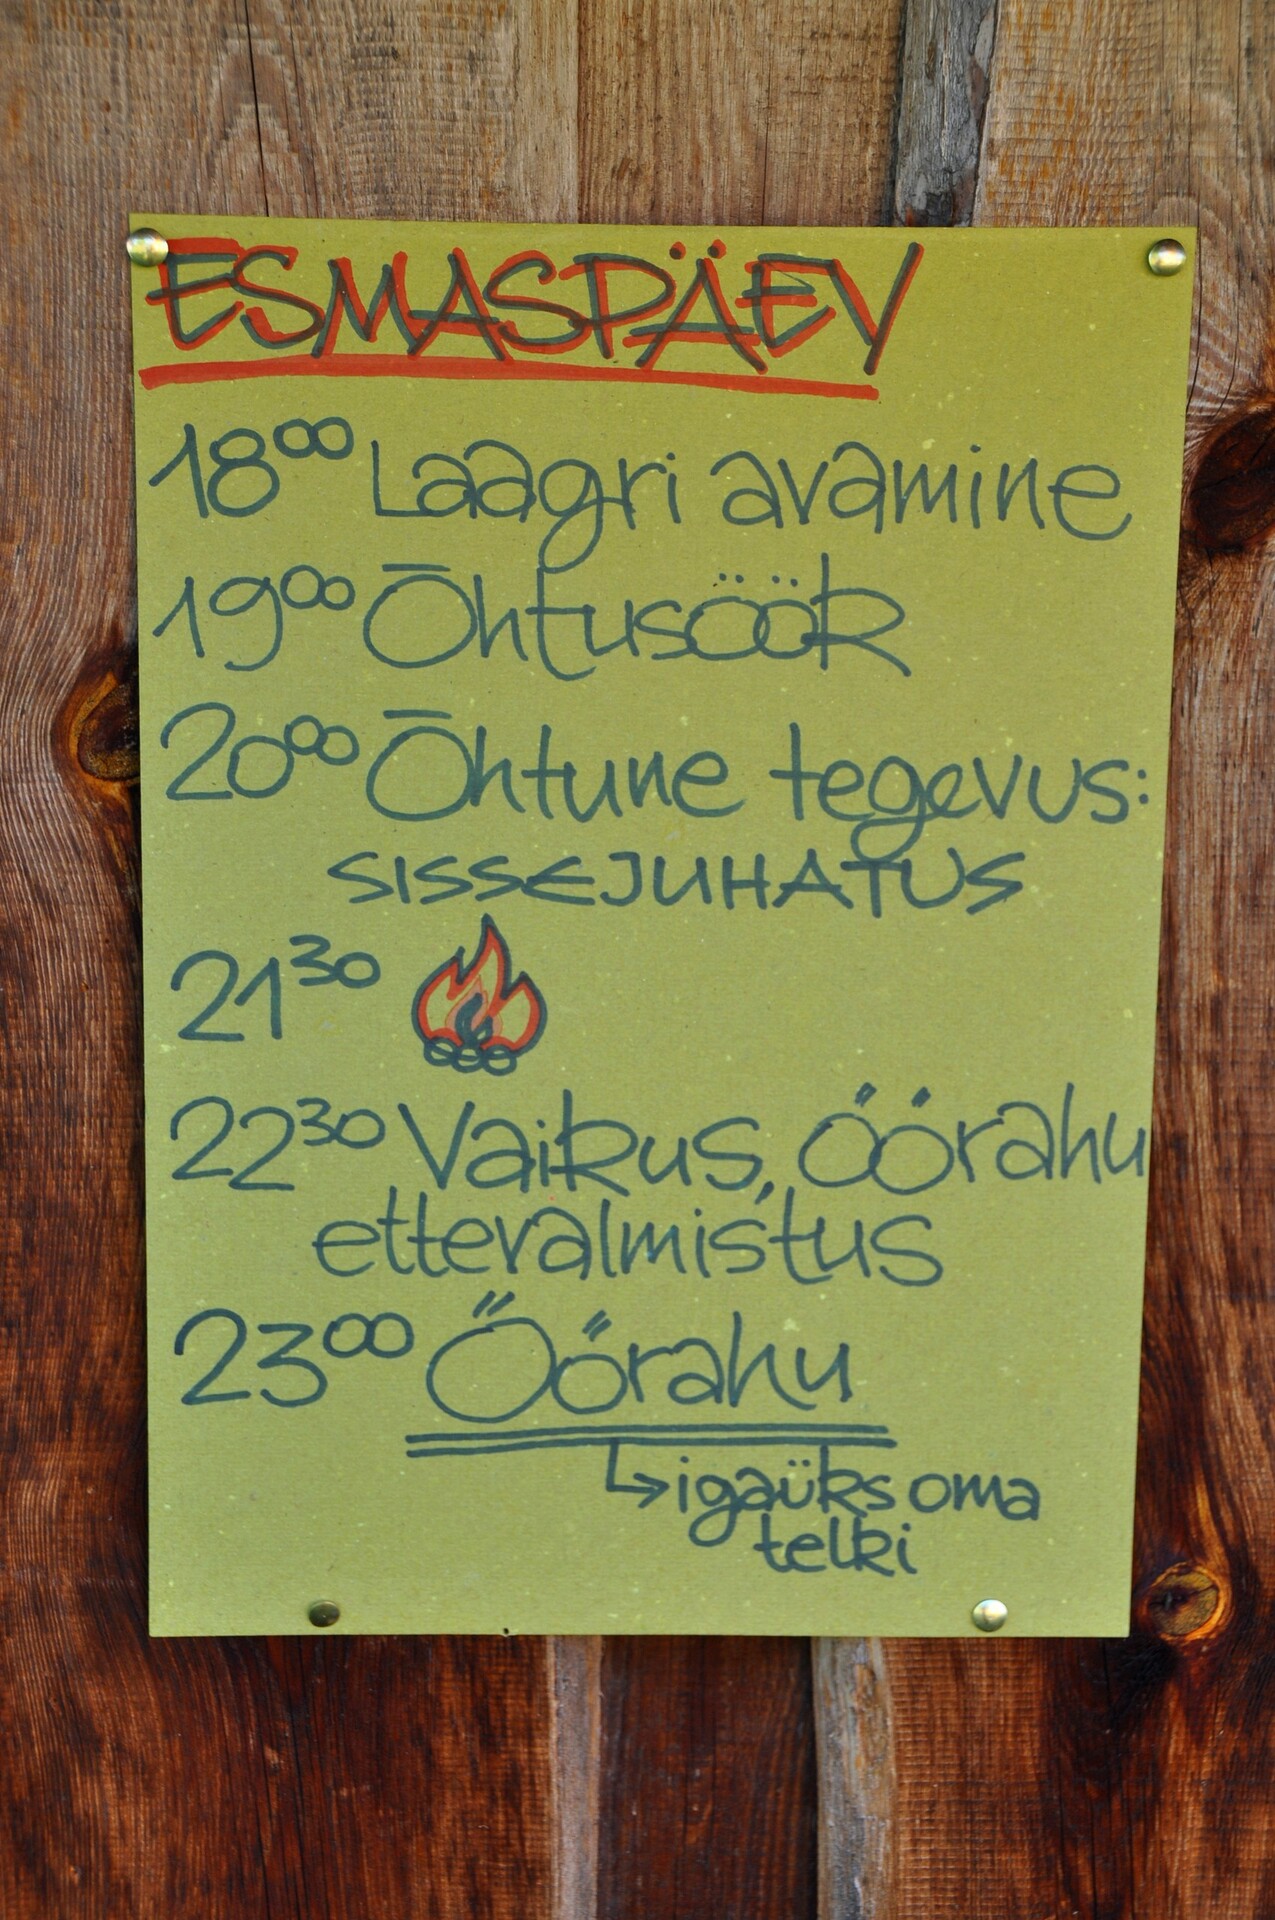 ESMASPÄEV
18⁰⁰ Laagri avamine
19⁰⁰ Õhtusöök
20⁰⁰ Õhtune tegevus:
SISSEJUHATUS
21³⁰
22³⁰ Vaikus, öörahu
ettevalmistus
23⁰⁰ Öörahu
↳ igaüks oma
telki